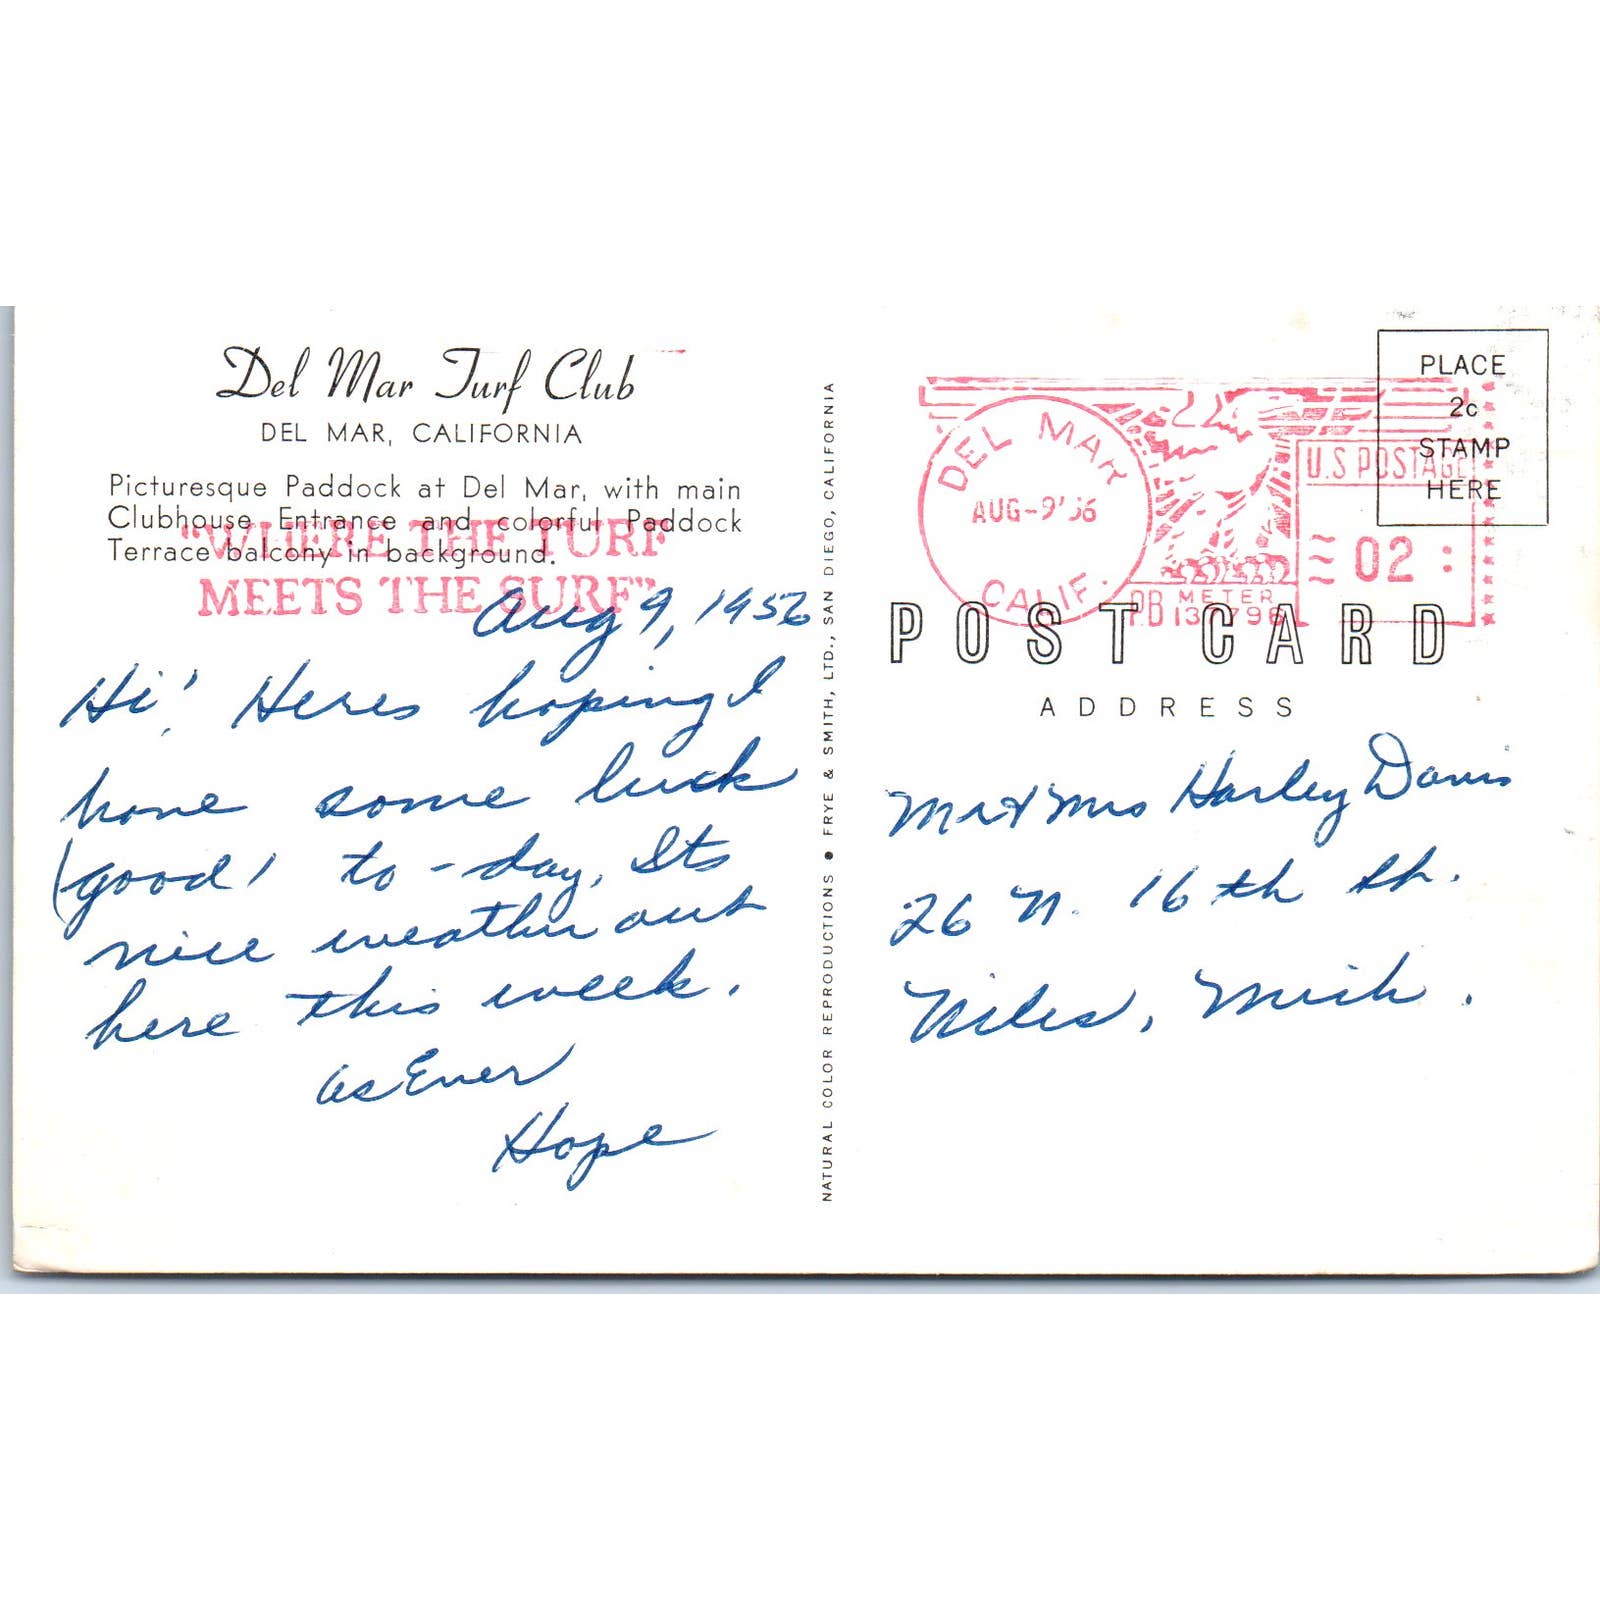 Del Mar Turf Club
DEL MAR, CALIFORNIA
Picturesque Paddock at Del Mar, with main
Clubhouse Entrance and colorful Paddock
Terrace balcony in background.
"WHERE THE TURF
MEETS THE SURF"
Aug 9, 1956
Hi! Heres hoping I
have some luck
(good) to-day, Its
nice weather out
here this week.
as Ever
Hope
NATURAL COLOR REPRODUCTIONS • FRYE & SMITH, LTD., SAN DIEGO, CALIFORNIA
DEL MAR
AUG-9'56
CALIF.
U.S POSTAGE
02
P.B METER
PLACE
2c
STAMP
HERE
POST CARD
ADDRESS
Mr & Mrs Harley Davis
26 N. 16th St.
Niles, Mich.